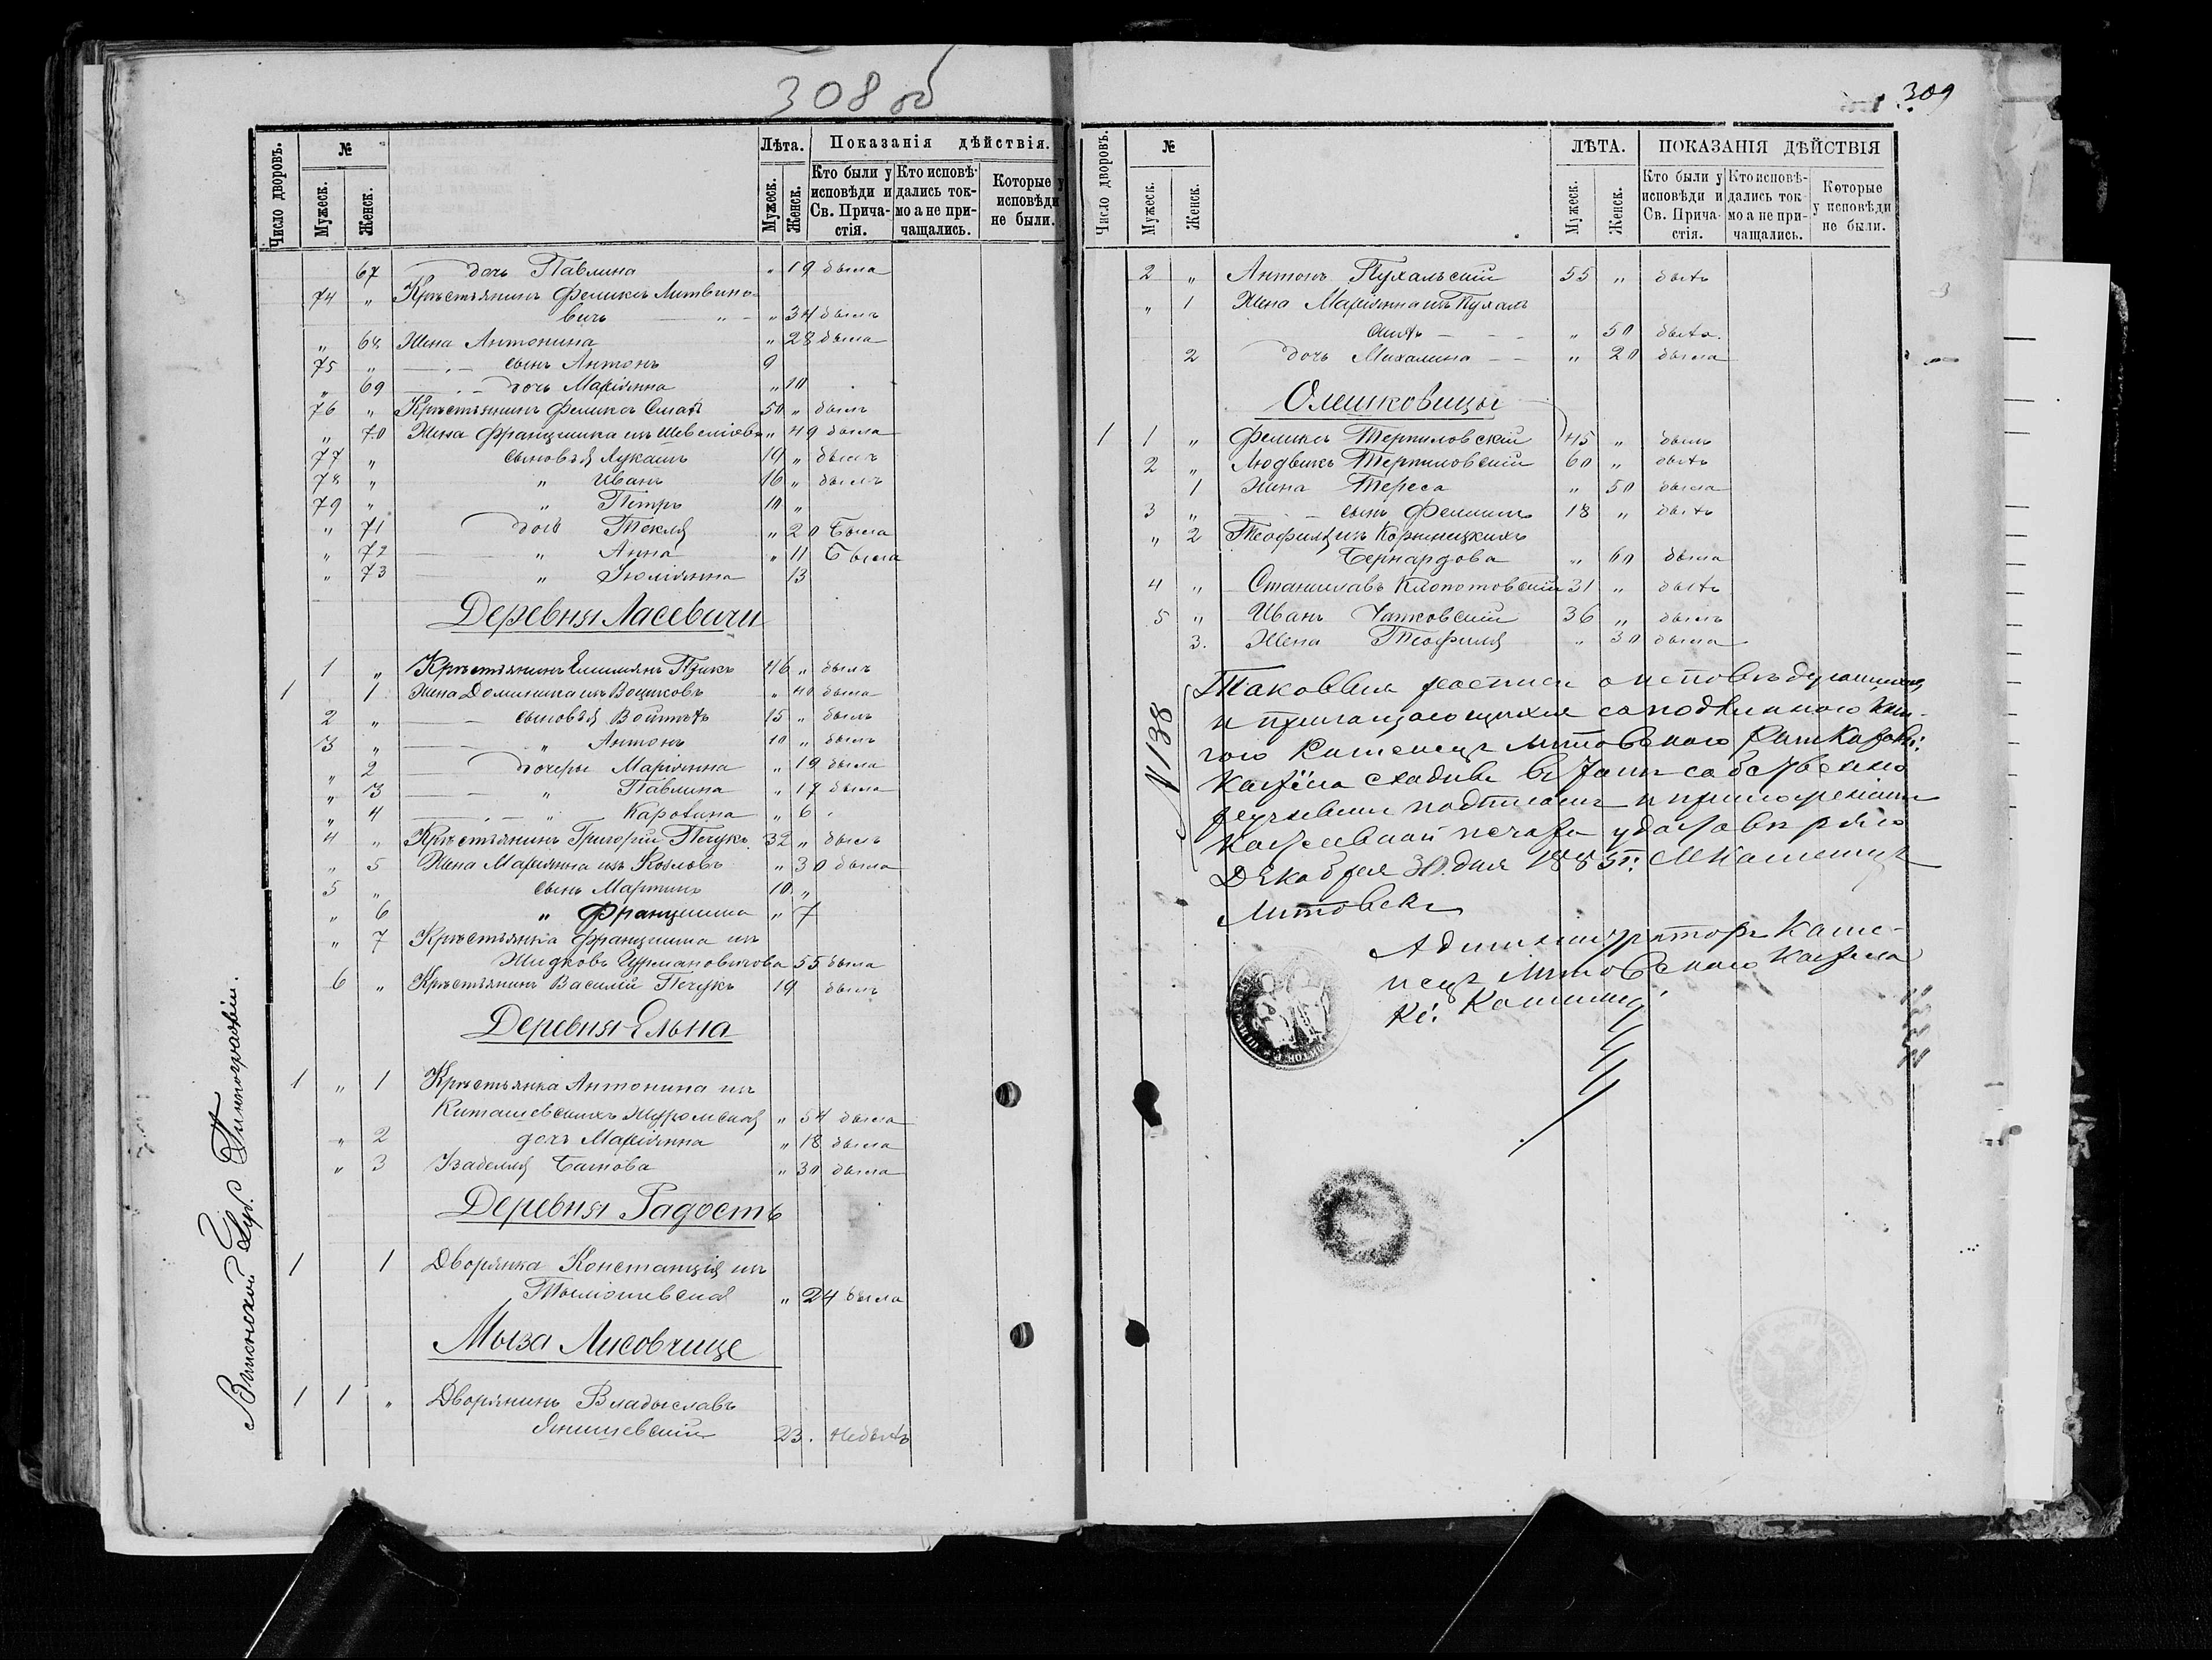 308 об
Число дворовъ. № Лѣта. Показанія дѣйствія.
Мужеск. Женск. Мужеск. Женск. Кто были у исповѣди и Св. Причастія. Кто исповѣдались токмо а не причащались. Которые у исповѣди не были.
67 дочь Павлина " 19 была
74 " Крестьянинъ Феликсъ Литвино-
вичъ " 34 былъ
" 68 Жена Антонина " 28 была
75 " сынъ Антонъ 9
" 69 дочь Маріянна " 10
76 " Крестьянинъ Феликсъ 50 " былъ
" 70 Жена Францишка изъ " 49 была
77 " сыновья Лукашъ 19 " былъ
78 " " Иванъ 16 " былъ
79 " " Петръ 10 "
" 71 дочь Текля " 20 Была
" 72 " Анна " 11 Была
" 73 " Юліянна 13
Деревня Ласевичи
1 " Крестьянинъ 46 " былъ
1 1 Жена Доминика изъ " 40 была
2 " сыновья Войтѣхъ 15 " былъ
3 " " Антонъ 10 " былъ
" 2 дочеры Маріянна " 19 была
" 3 " Павлина " 17 была
" 4 " " 6
4 " Крестьянинъ Григорій Печукъ 32 " былъ
" 5 Жена Маріянна изъ Козловъ " 30 была
5 " сынъ Мартинъ 10 "
" 6 " Францишка " 7
" 7 Крестьянка Францишка изъ
Жидковъ 55 была
6 " Крестьянинъ Василій Печукъ 19 былъ
Деревня Ельна
1 " 1 Крестьянка Антонина изъ
" 54 была
" 2 дочь Маріянна " 18 была
" 3 Изабелля " 30 была
Деревня Радость
1 1 Дворянка Констанція изъ
" 24 была
Мыза Лисовчице
1 1 " Дворянинъ Владыславъ
Янишевскій 23. небылъ
Виленской Губ. Типографіи.
309
Число дворовъ. № ЛѢТА. ПОКАЗАНІЯ ДѢЙСТВІЯ
Мужеск. Женск. Мужеск. Женск. Кто были у исповѣди и Св. Причастія. Кто исповѣдались ток мо а не причащались. Которые у исповѣди не были.
2 " Антонъ Пухальскій 55 " былъ
" 1 Жена Маріянна изъ Пухаль
скихъ " 50 была.
2 дочь Михалина " 20 была
Олешковицы
1 1 " Феликсъ Терпиловскій 45 " былъ
2 " Людвикъ Терпиловскій 60 " былъ
1 Жена Тереса " 50 была
3 " сынъ 18 " былъ
" 2 Теофиля изъ
Бернардова " 60 была
4 " Станиславъ Клопотовскій 31 " былъ
5 " Иванъ 36 " былъ
3. Жена Теофиля " 30 была
N 138
Таковыя росписи о исповѣдующихся
и причащающихся съ подлинною кни-
гою Каменецъ Литовскаго
Костела сходны въ томъ собственно
ручнымъ подписомъ и приложеніемъ
костельной печати удостовѣряю
Декабря 30 дня 1885 г: М Каменецъ
Литовскъ
Администраторъ Каме-
нецъ Литовскаго Костела